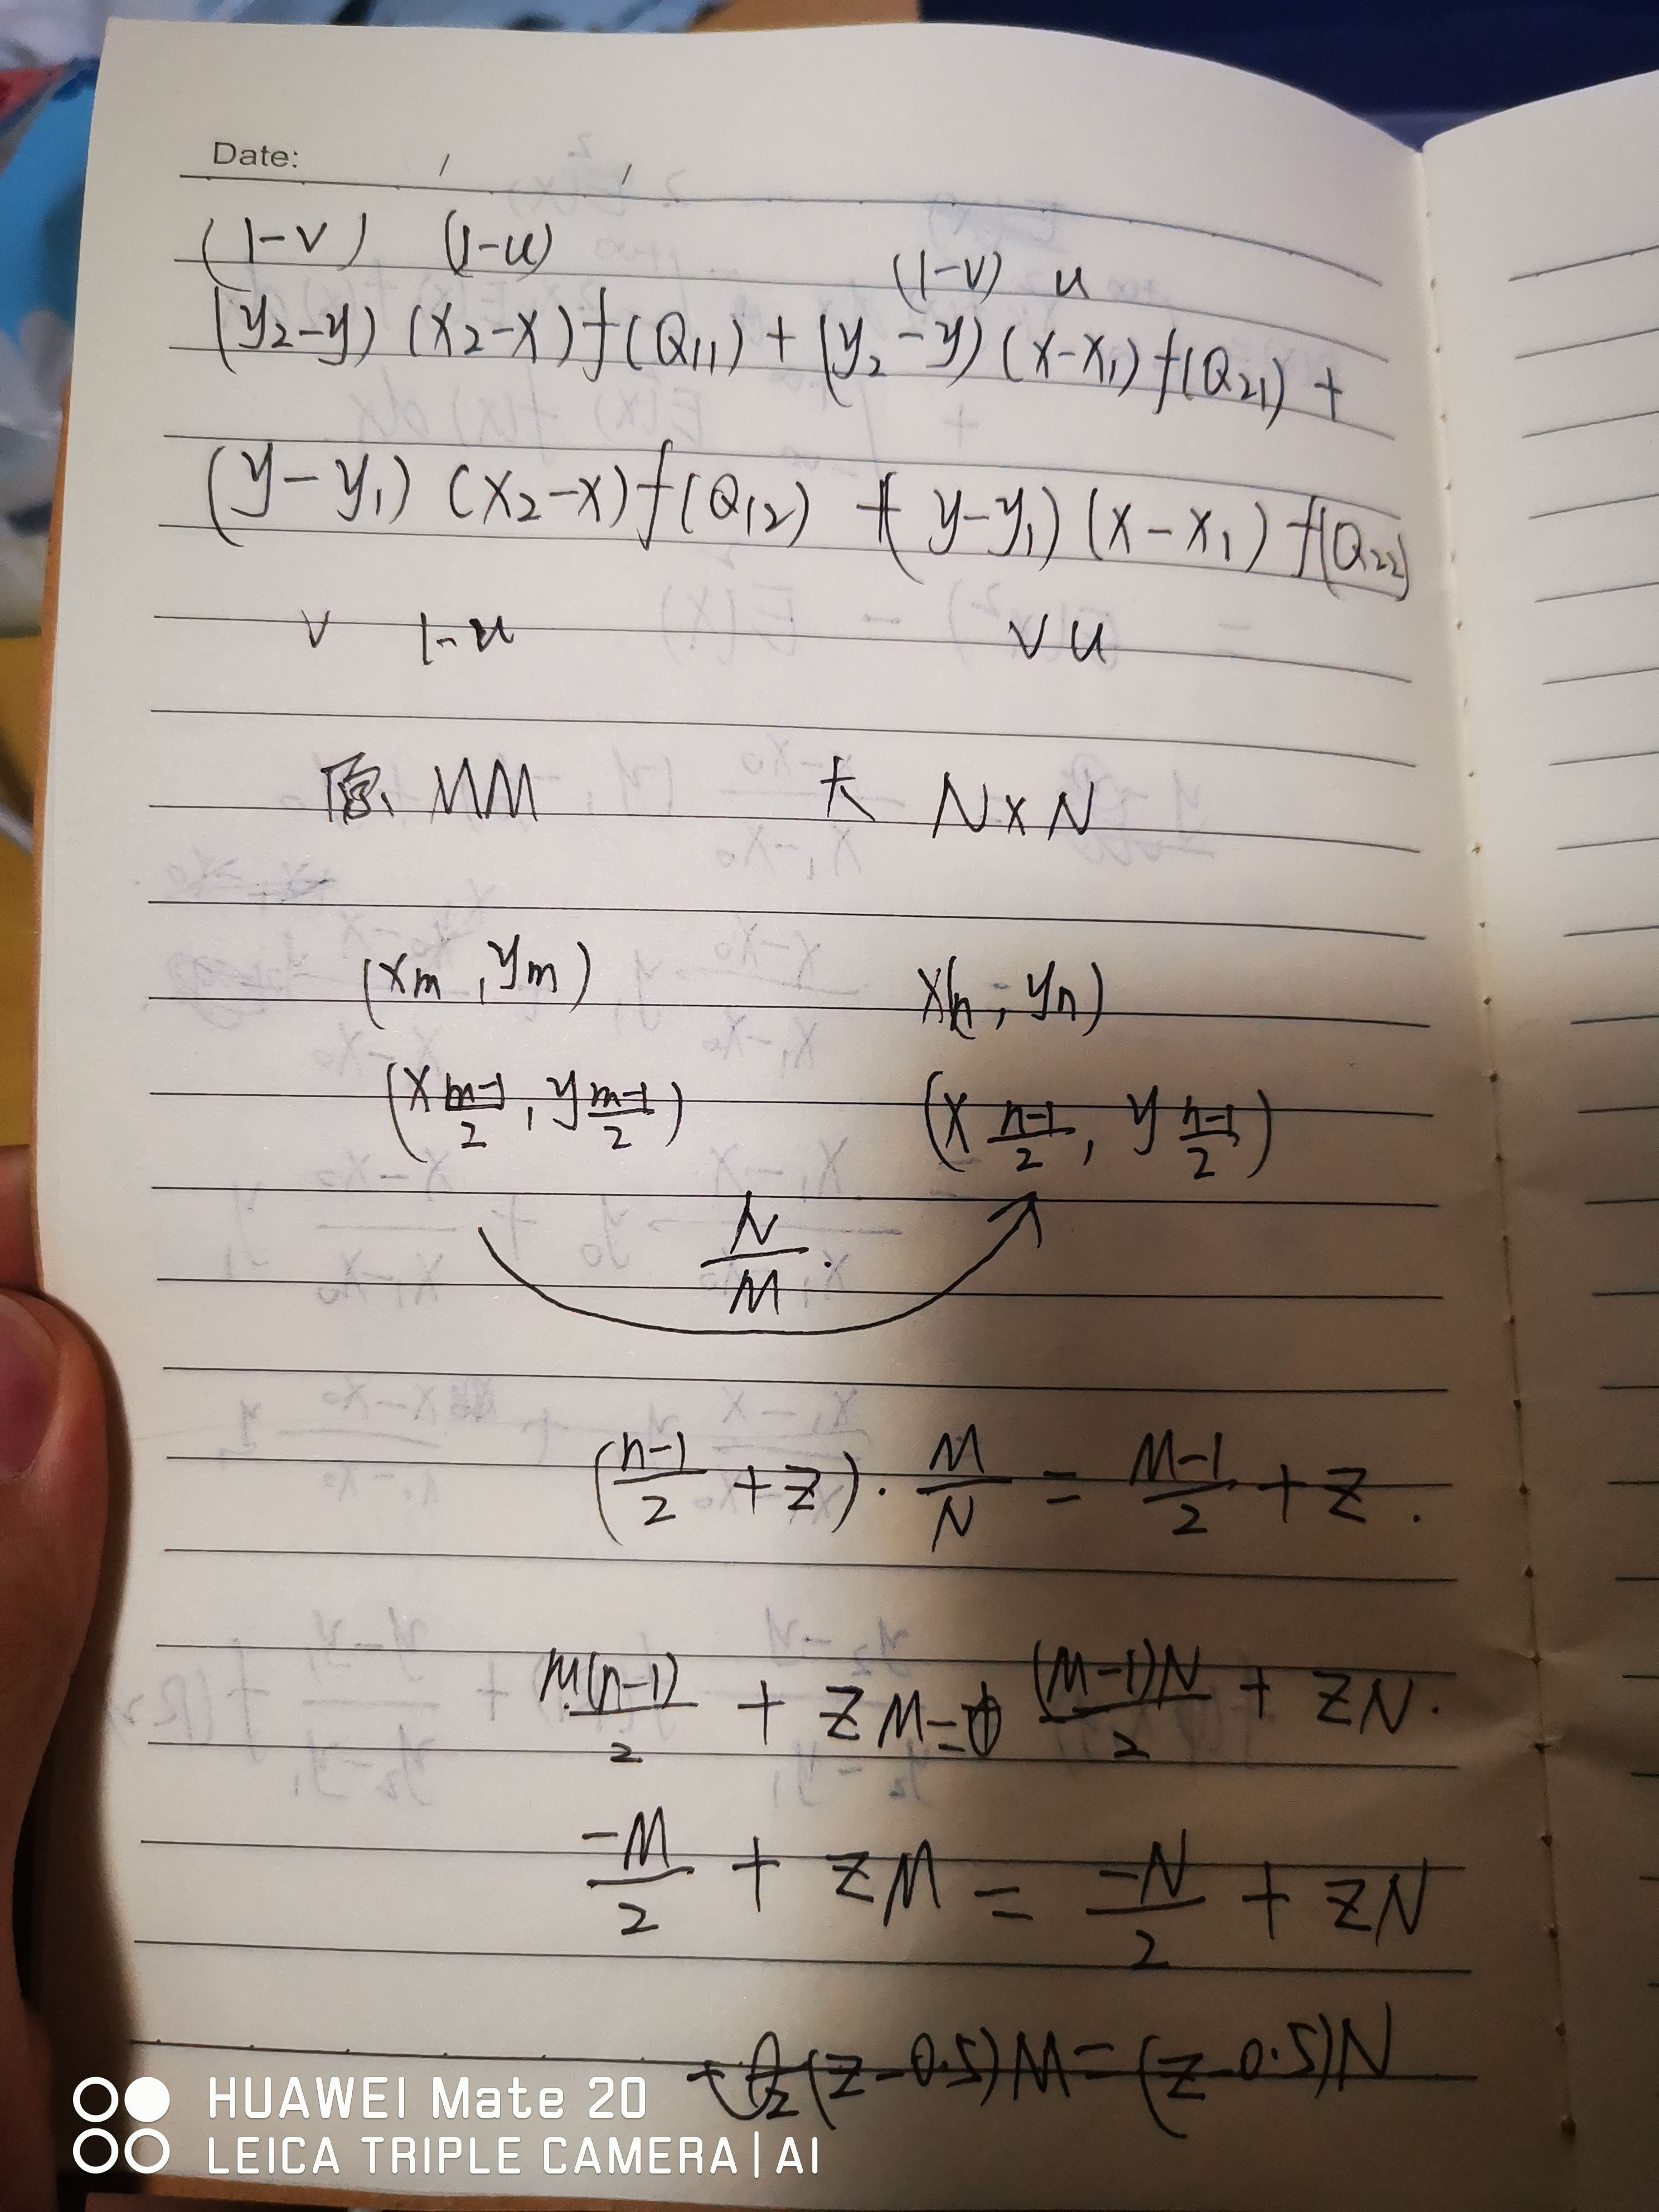 Date: / /
(1-v) (1-u) (1-v) u
(y₂-y) (x₂-x) f(Q₁₁) + (y₂-y) (x-x₁) f(Q₂₁) +
(y-y₁) (x₂-x) f(Q₁₂) + (y-y₁) (x-x₁) f(Q₂₂)
v 1-u v u
原 MM 大 N×N
(xm, ym) x(n, yn)
(x (m-1)/2, y (m-1)/2) (x (n-1)/2, y (n-1)/2)
N/M
((n-1)/2 + z) · M/N = (M-1)/2 + z.
M(n-1)/2 + zM = (M-1)N/2 + zN.
-M/2 + zM = -N/2 + zN
(z-0.5)M = (z-0.5)N
HUAWEI Mate 20
LEICA TRIPLE CAMERA | AI